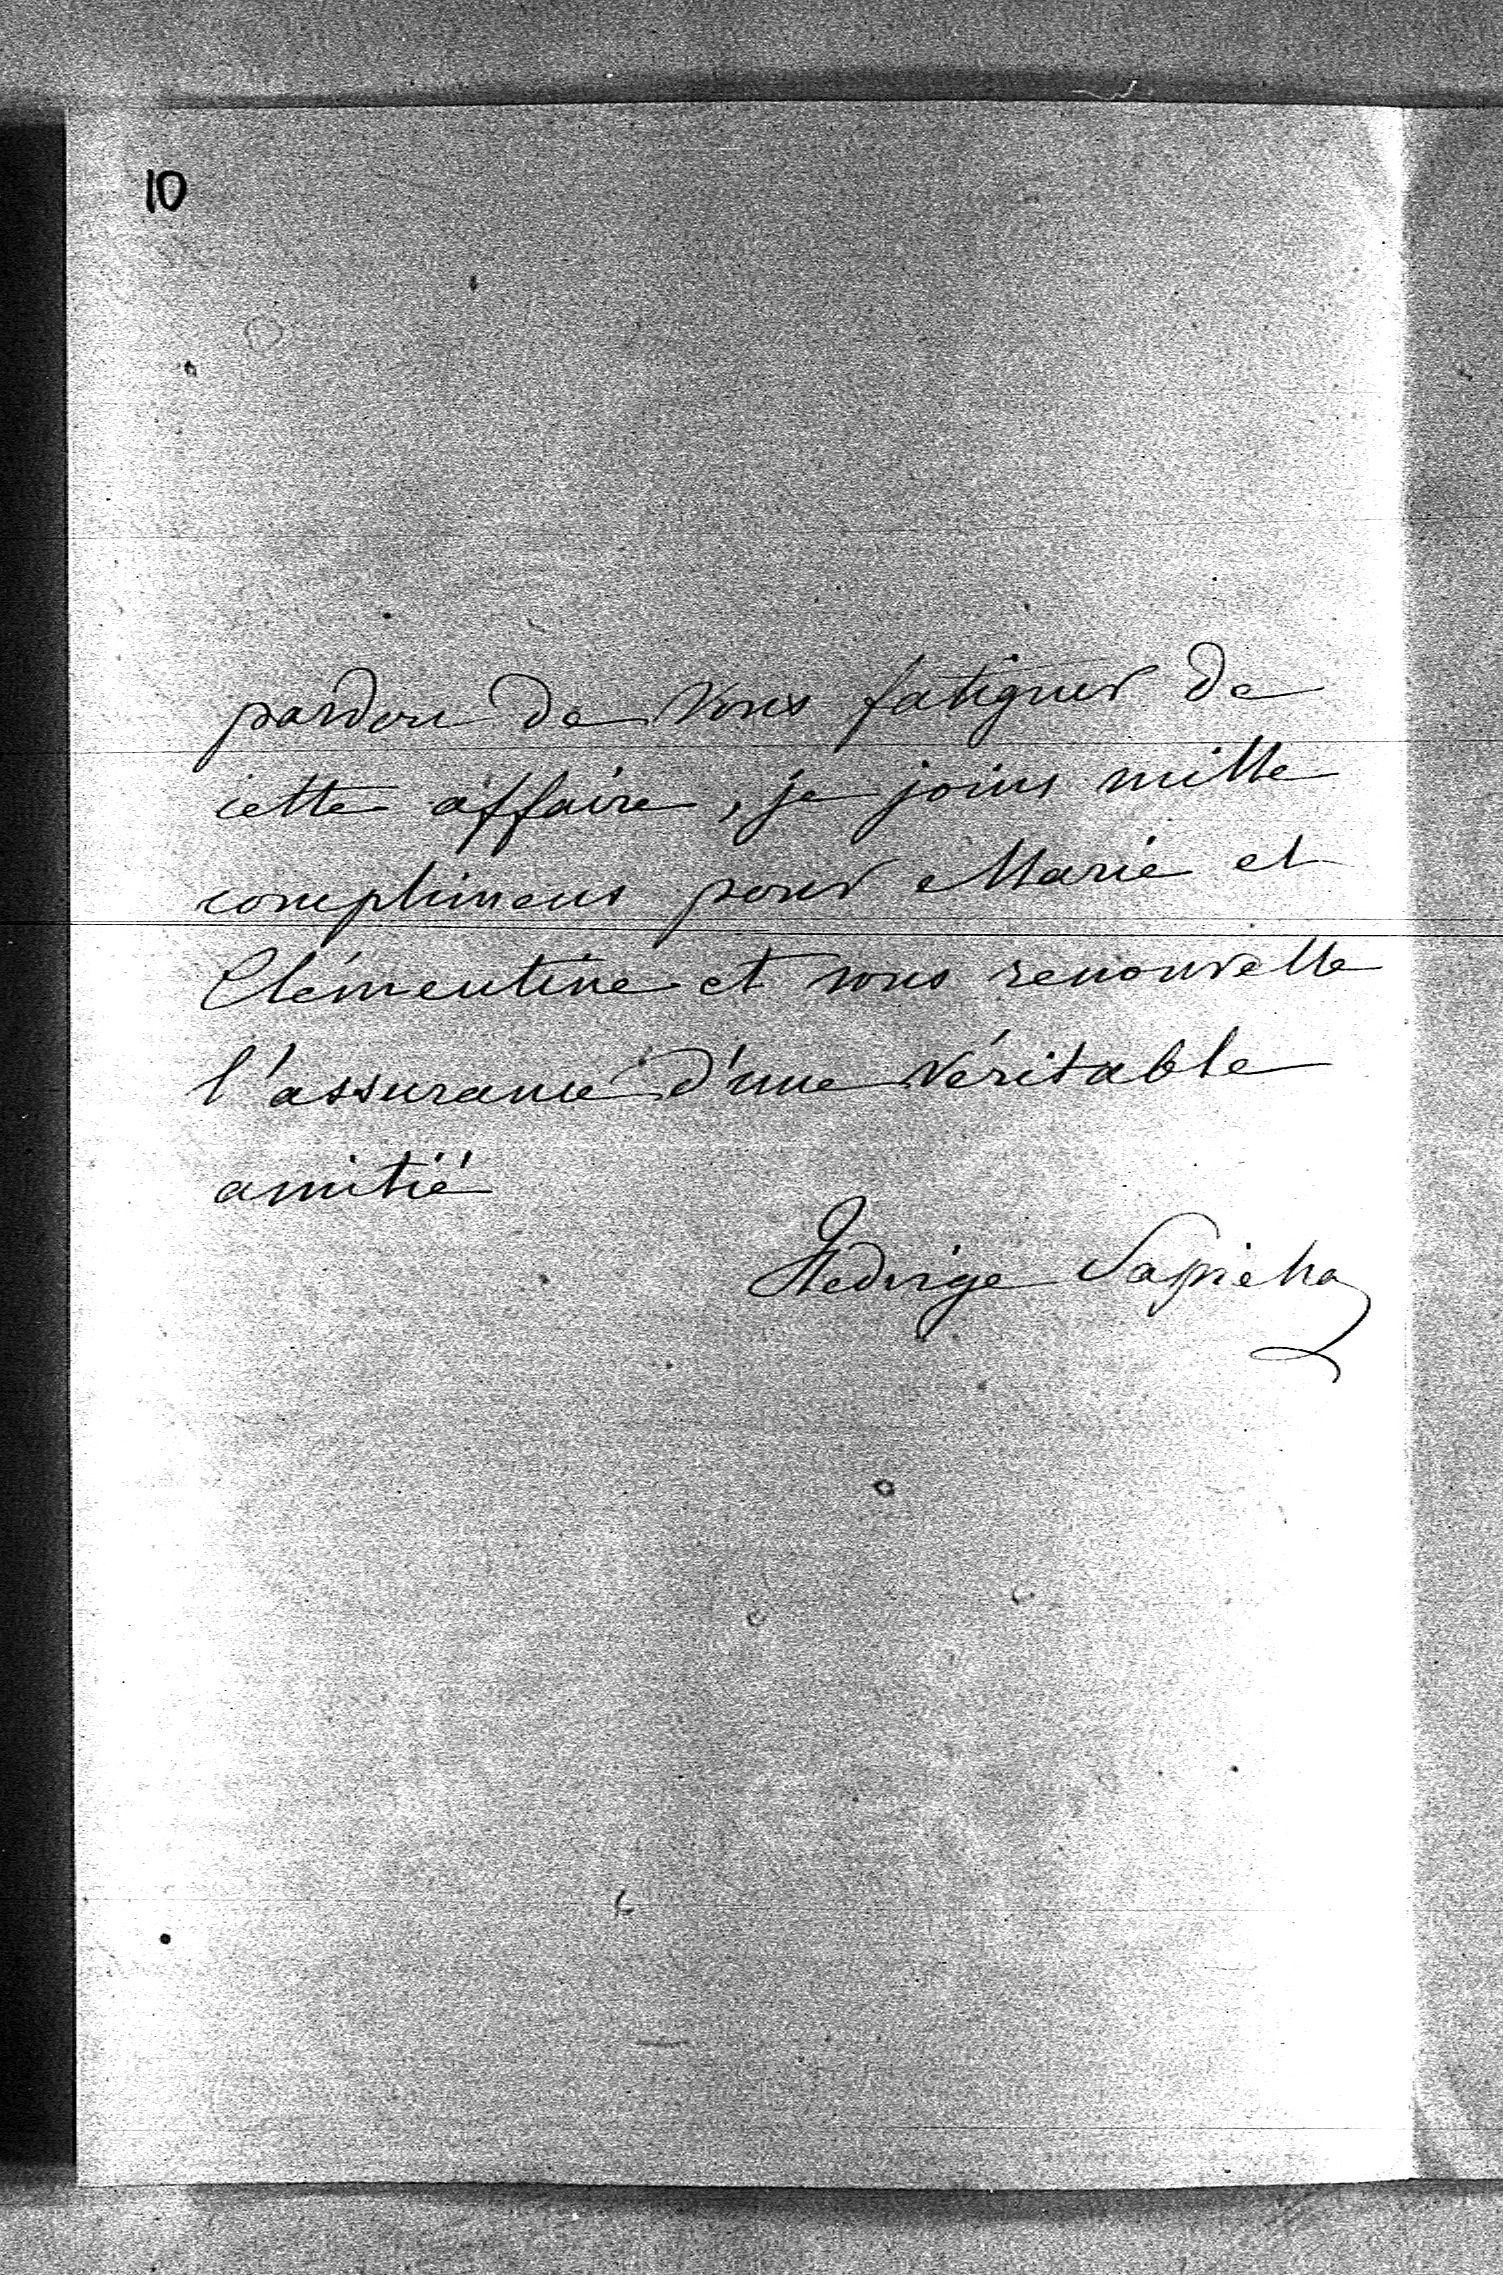 10
pardon de vous fatiguer de
cette affaire, je joins mille
complimens pour Marie et
Clémentine et vous renouvelle
l'assurance d'une véritable
amitié
Hedvige Sapieha